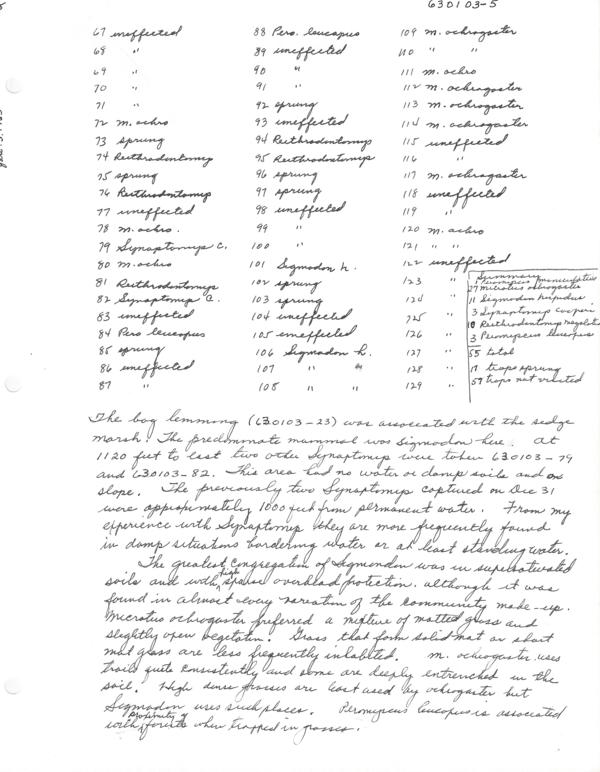 630103-5
67 uneffected
68 "
69 "
70 "
71 "
72 m. ochro
73 sprung
74 Reithrodontomys
75 sprung
76 Reithrodontomys
77 uneffected
78 m. ochro.
79 Synaptomys C.
80 m. ochro
81 Reithrodontomys
82 Synaptomys C.
83 uneffected
84 Pero leucopus
85 sprung
86 uneffected
87 "
88 Pero. leucopus
89 uneffected
90 "
91 "
92 sprung
93 uneffected
94 Reithrodontomys
95 Reithrodontomys
96 sprung
97 sprung
98 uneffected
99 "
100 "
101 Sigmodon h.
102 sprung
103 sprung
104 uneffected
105 uneffected
106 Sigmodon h.
107 " "
108 " "
109 m. ochrogaster
110 " "
111 m. ochro
112 m. ochrogaster
113 m. ochrogaster
114 m. ochrogaster
115 uneffected
116 "
117 m. ochrogaster
118 uneffected
119 "
120 m. ochro
121 " "
122 uneffected
123 "
124 "
125 "
126 "
127 "
128 "
129 "
Summary
1 Peromyscus maniculatus
27 Microtus ochrogaster
11 Sigmodon hispidus
3 Synaptomys cooperi
10 Reithrodontomys megalotis
3 Peromyscus leucopus
55 total
17 traps sprung
57 traps not visited
The bog lemming (630103-23) was associated with the sedge
marsh. The predominate mammal was Sigmodon here. At
1120 feet to last two other Synaptomys were taken 630103-79
and 630103-82. This area had no water or damp soils and on
slope. The previously two Synaptomys captured on Dec 31
were approximately 1000 feet from permanent water. From my
experience with Synaptomys they are more frequently found
in damp situations bordering water or at least standing water.
The greatest congregation of Sigmondon was in supersaturated
soils and with high sparse overhead protection. although it was
found in almost every variation of the community make-up.
Microtus ochrogaster preferred a mixture of matted grass and
slightly open vegetation. Grass that form solid mat or short
mat grass are less frequently inhabited. m. ochrogaster uses
trails quite consistently and some are deeply entrenched in the
soil. High dense grasses are least used by ochrogaster but
Sigmodon uses such places. Peromyscus leucopus is associated
with propinquity of forests when trapped in grasses.